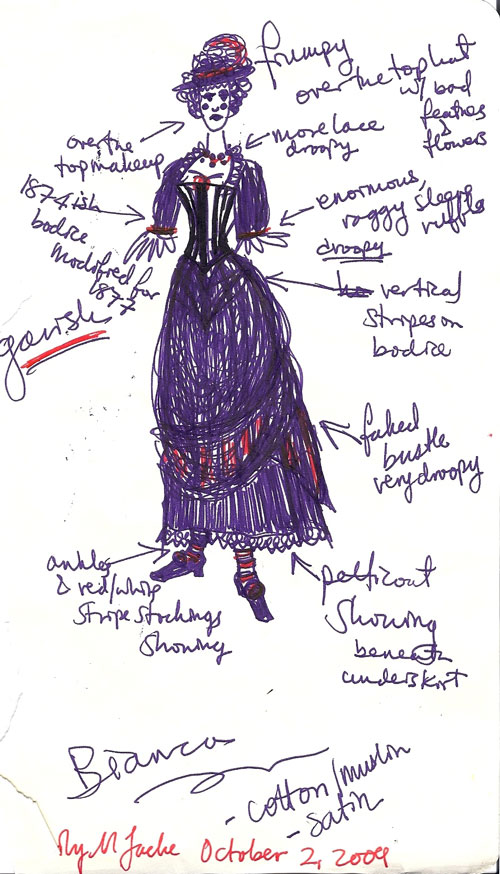 frumpy
over the top hat
w/ bad
feathes
&
flowers
over the
top makeup
more lace
droopy
1874 ish
bodice
modified for
1877
enormous,
raggy sleeve
ruffle
droopy
garish
vertical
stripes on
bodice
faked
bustle
very droopy
ankles
& red/white
stripe stockings
showing
petticoat
showing
beneath
underskirt
Bianca
- cotton/muslin
- satin
October 2, 2009